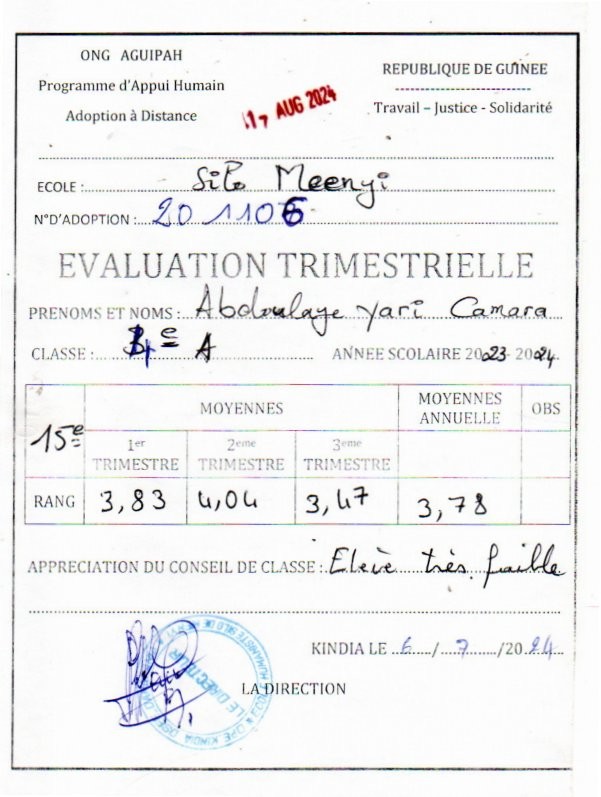 ONG AGUIPAH
Programme d'Appui Humain
Adoption à Distance
17 AUG 2024
REPUBLIQUE DE GUINEE
Travail – Justice - Solidarité
ECOLE : Silo Meenyi
N°D'ADOPTION : 20 1106
EVALUATION TRIMESTRIELLE
PRENOMS ET NOMS : Abdoulaye Yari Camara
CLASSE : 4e A ANNEE SCOLAIRE 2023-2024
15e MOYENNES MOYENNES ANNUELLE OBS
1er TRIMESTRE 2eme TRIMESTRE 3eme TRIMESTRE
RANG 3,83 4,04 3,47 3,78
APPRECIATION DU CONSEIL DE CLASSE : Elève très faible
KINDIA LE 6/7/2024
LA DIRECTION
LE DIRECTEUR